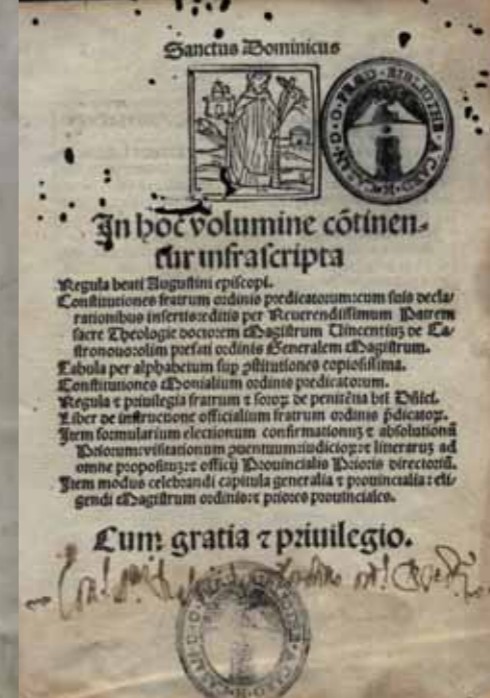 Sanctus Dominicus
In hoc volumine cõtinen-
tur infrascripta
Regula beati Augustini episcopi.
Constitutiones fratrum ordinis predicatorum: cum suis decla/
rationibus insertis: editis per Reuerendissimum Patrem
sacre Theologie doctorem Magistrum Uincentiuz de Ca/
stronouo: olim prefati ordinis Generalem Magistrum.
Tabula per alphabetum sup ꝯstitutiones copiosissima.
Constitutiones Monialium ordinis predicatorum.
Regula ⁊ priuilegia fratrum ⁊ soroꝝ de penitẽtia bti Dñici.
Liber de instructione officialium fratrum ordinis p̃dicatoꝝ.
Item formularium electionum confirmationuz ⁊ absolutionũ
Priorum: visitationum ꝯuentuum: iudicioꝝ: ⁊ litteraruz ad
omne propositũ: ⁊ officij Prouincialis Prioris directoriũ.
Item modus celebrandi capitula generalia ⁊ prouincialia: eli-
gendi Magistrum ordinis: ⁊ priores prouinciales.
Cum gratia ⁊ priuilegio.